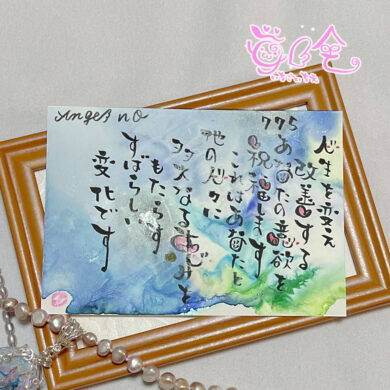 Angel no
775
人生を変え
改善する
あなたの意欲を
祝福します
これはあなたと
他の人々に
多大なる恵みを
もたらす
すばらしい
変化です